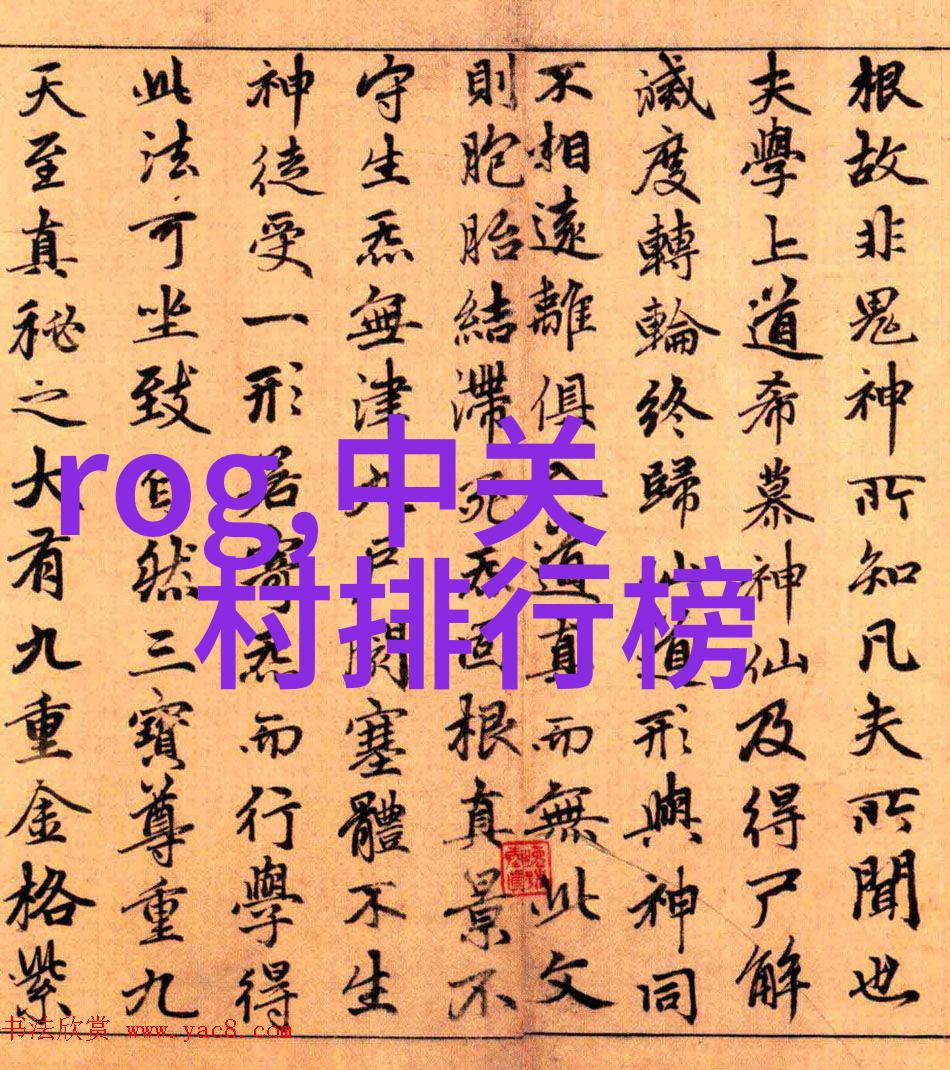 根故非鬼神所知凡夫所聞也
夫學上道希慕神仙及得尸解
滅度轉輪終歸仙道形與神同
不相遠離俱入道真而無此文
則胞胎結滯死炁固根真景不
守生炁無津九戶閉塞體不生
神徒受一形若寄炁而行學得
此法可坐致自然三寶尊重九
天至真秘之大有九重金格紫
rog,中关
村排行榜
书法欣赏 www.yac8.com